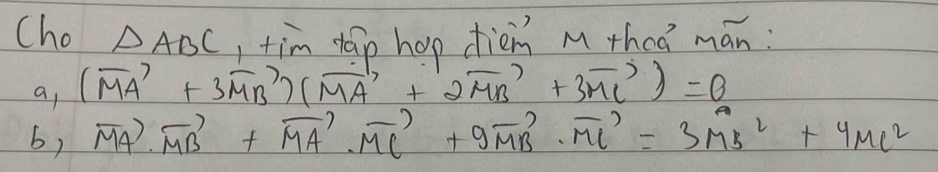 Cho △ABC, tìm tập hợp điểm M thoả mãn:
a, (MA⃗ + 3MB⃗)(MA⃗ + 2MB⃗ + 3MC⃗) = 0
b, MA⃗.MB⃗ + MA⃗.MC⃗ + 9MB⃗.MC⃗ = 3MB² + 4MC²